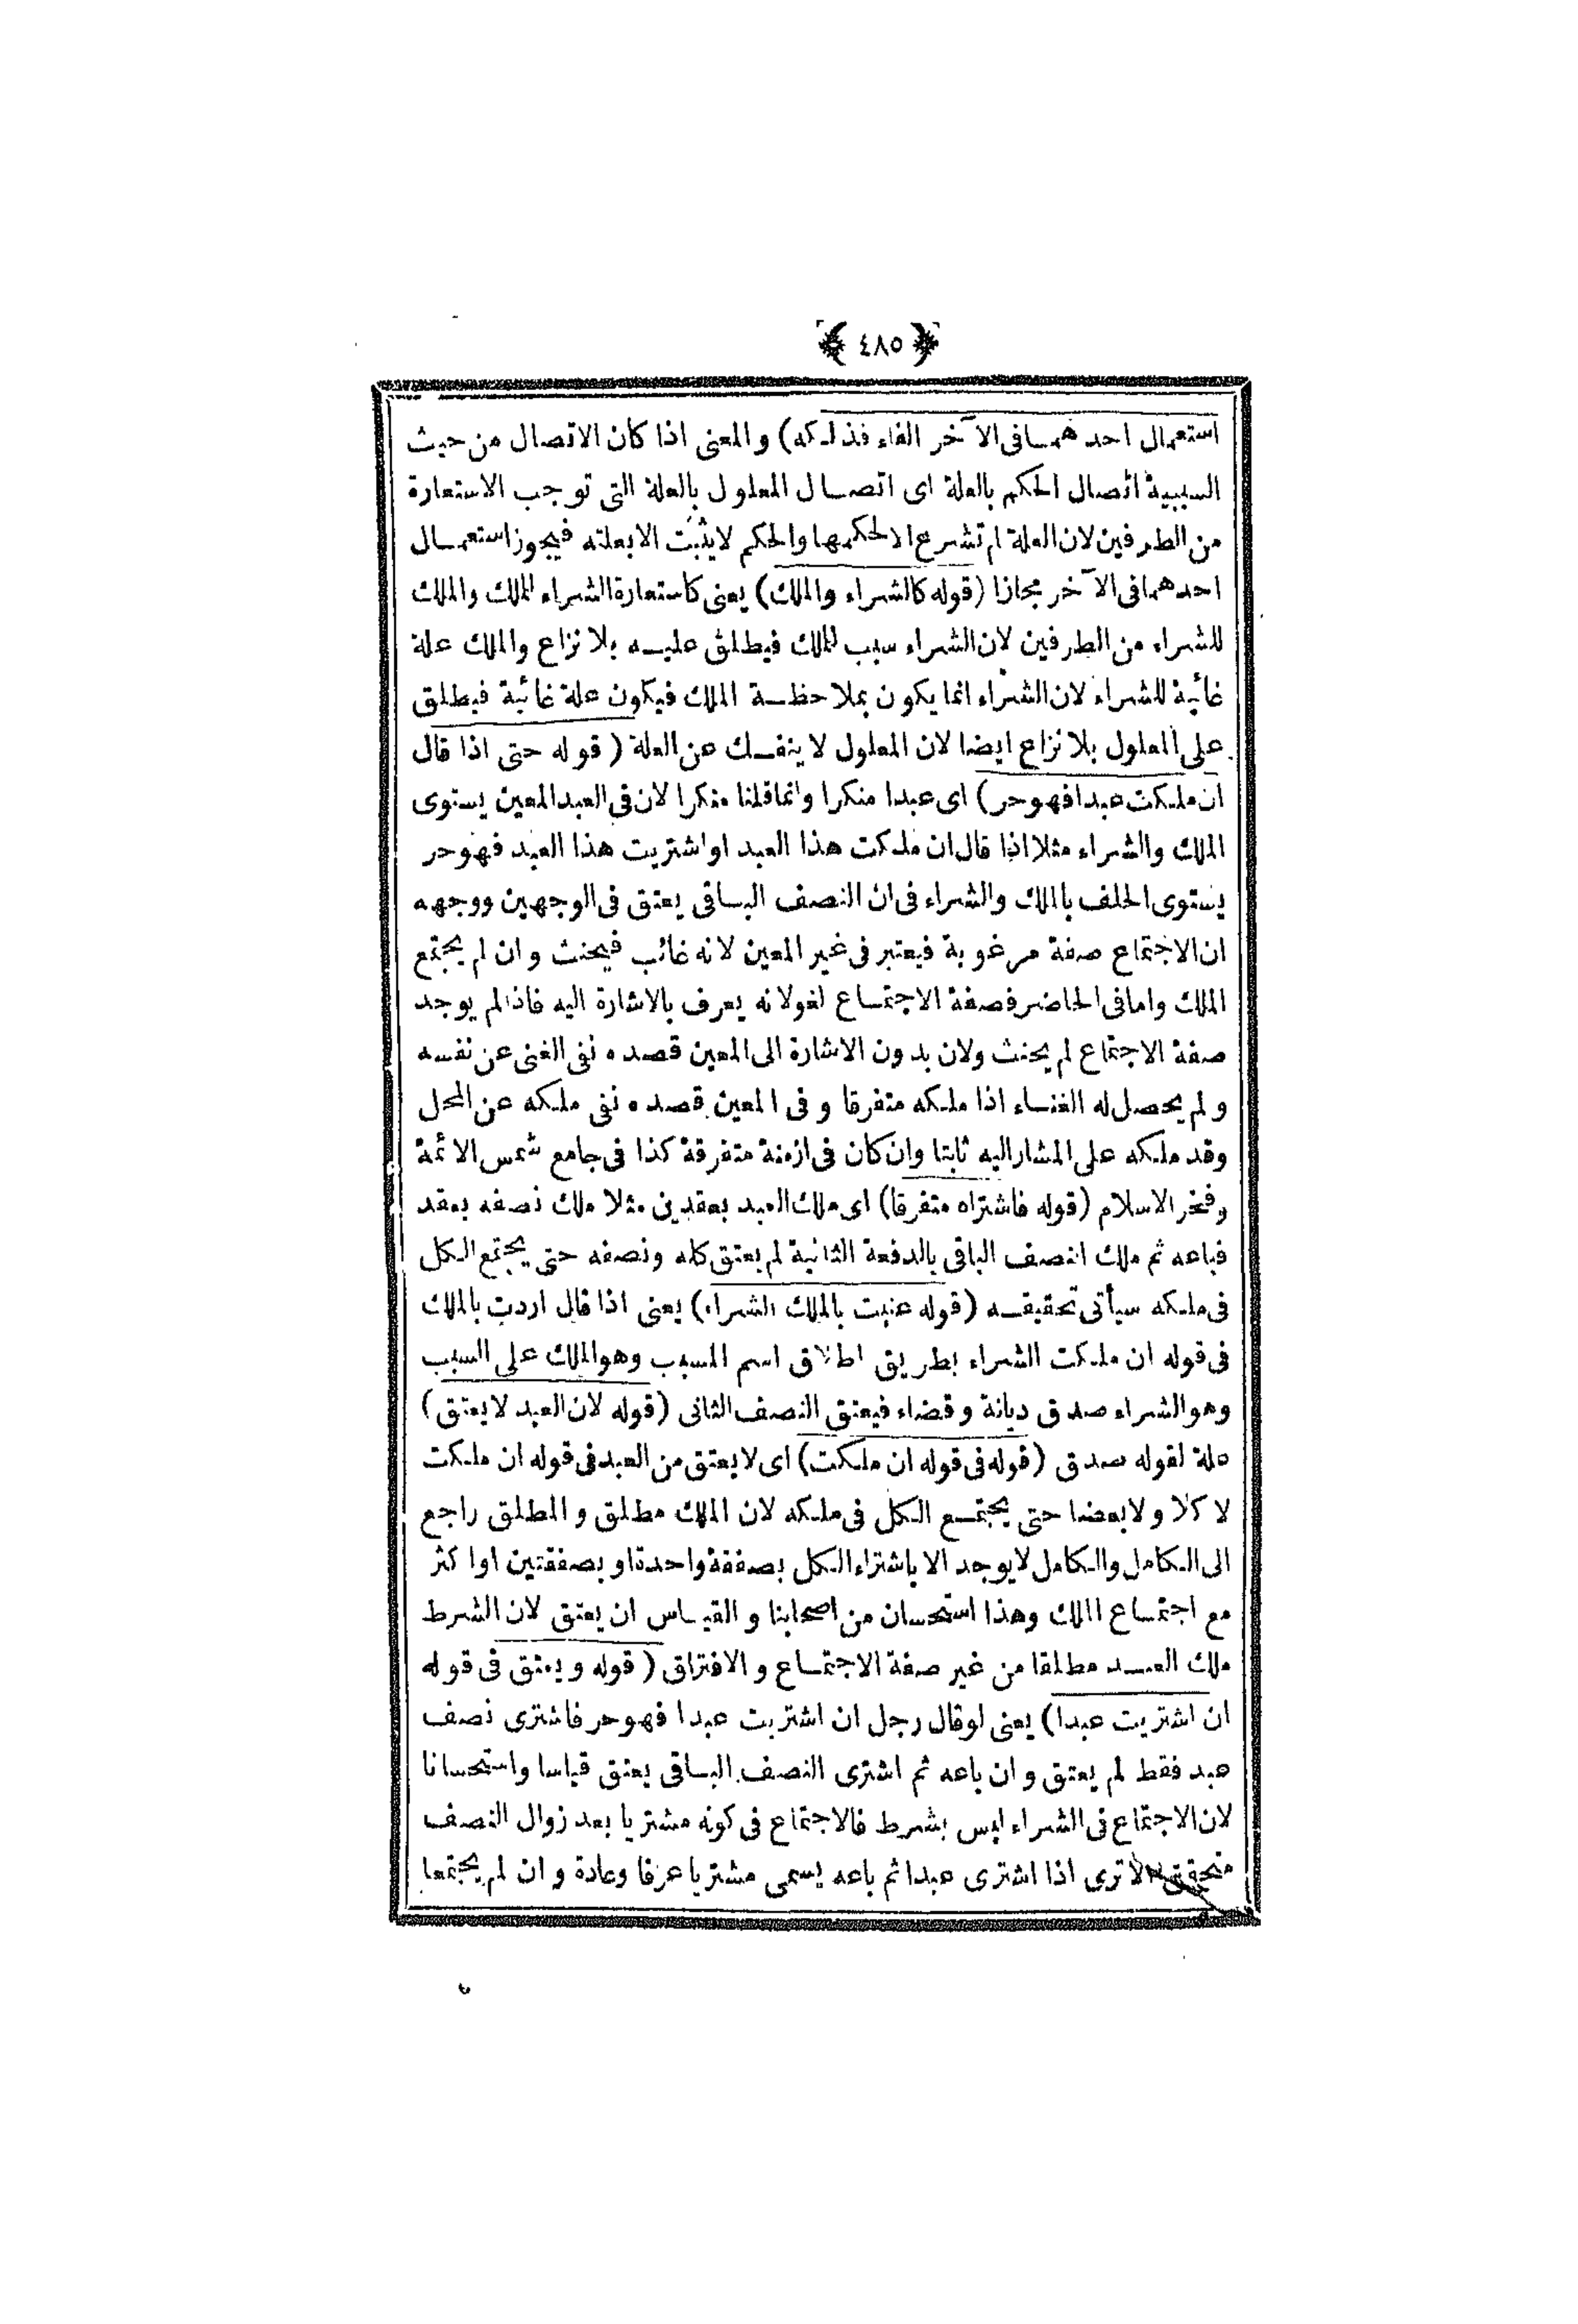 ﴿ ٤٨٥ ﴾
استعمال احدهما فى الآخر الفاء فذلكه) والمعنى اذا كان الاتصال من حيث
السببية اتصال الحكم بالعلة اى اتصال المعلول بالعلة التى توجب الاستعارة
من الطرفين لان العلة لم تشرع الا لحكمها والحكم لا يثبت الا بعلته فيجوز استعمال
احدهما فى الآخر مجازا (قوله كالشراء والملك) يعنى كاستعارة الشراء للملك والملك
للشراء من الطرفين لان الشراء سبب للملك فيطلق عليه بلا نزاع والملك علة
غائية للشراء لان الشراء انما يكون بملاحظة الملك فيكون علة غائية فيطلق
على المعلول بلا نزاع ايضا لان المعلول لا ينفك عن العلة (قوله حتى اذا قال
ان ملكت عبدا فهو حر) اى عبدا منكرا وانما قلنا منكرا لان فى العبد المعين يستوى
الملك والشراء مثلا اذا قال ان ملكت هذا العبد او اشتريت هذا العبد فهو حر
يستوى الحلف بالملك والشراء فى ان النصف الباقى يعتق فى الوجهين ووجهه
ان الاجتماع صفة مرغوبة فيعتبر فى غير المعين لانه غائب فيحنث وان لم يجتمع
الملك واما فى الحاضر فصفة الاجتماع لغو لانه يعرف بالاشارة اليه فاذا لم يوجد
صفة الاجتماع لم يحنث ولان بدون الاشارة الى المعين قصده نفى الغنى عن نفسه
ولم يحصل له الغناء اذا ملكه متفرقا وفى المعين قصده نفى ملكه عن المحل
وقد ملكه على المشار اليه ثابتا وان كان فى ازمنة متفرقة كذا فى جامع شمس الائمة
وفخر الاسلام (قوله فاشتراه متفرقا) اى ملك العبد بعقدين مثلا ملك نصفه بعقد
فباعه ثم ملك النصف الباقى بالدفعة الثانية لم يعتق كله ونصفه حتى يجتمع الكل
فى ملكه سيأتى تحقيقه (قوله عنيت بالملك الشراء) يعنى اذا قال اردت بالملك
فى قوله ان ملكت الشراء بطريق اطلاق اسم المسبب وهو الملك على السبب
وهو الشراء صدق ديانة وقضاء فيعتق النصف الثانى (قوله لان العبد لا يعتق)
علة لقوله صدق (قوله فى قوله ان ملكت) اى لا يعتق من العبد فى قوله ان ملكت
لا كلا ولا بعضا حتى يجتمع الكل فى ملكه لان الملك مطلق والمطلق راجع
الى الكامل والكامل لا يوجد الا باشتراء الكل بصفقة واحدة او بصفقتين او اكثر
مع اجتماع الملك وهذا استحسان من اصحابنا والقياس ان يعتق لان الشرط
ملك العبد مطلقا من غير صفة الاجتماع والافتراق (قوله ويعتق فى قوله
ان اشتريت عبدا) يعنى لو قال رجل ان اشتريت عبدا فهو حر فاشترى نصف
عبد فقط لم يعتق وان باعه ثم اشترى النصف الباقى يعتق قياسا واستحسانا
لان الاجتماع فى الشراء ليس بشرط فالاجتماع فى كونه مشتريا بعد زوال النصف
متحقق الا ترى اذا اشترى عبدا ثم باعه يسمى مشتريا عرفا وعادة وان لم يجتمعا